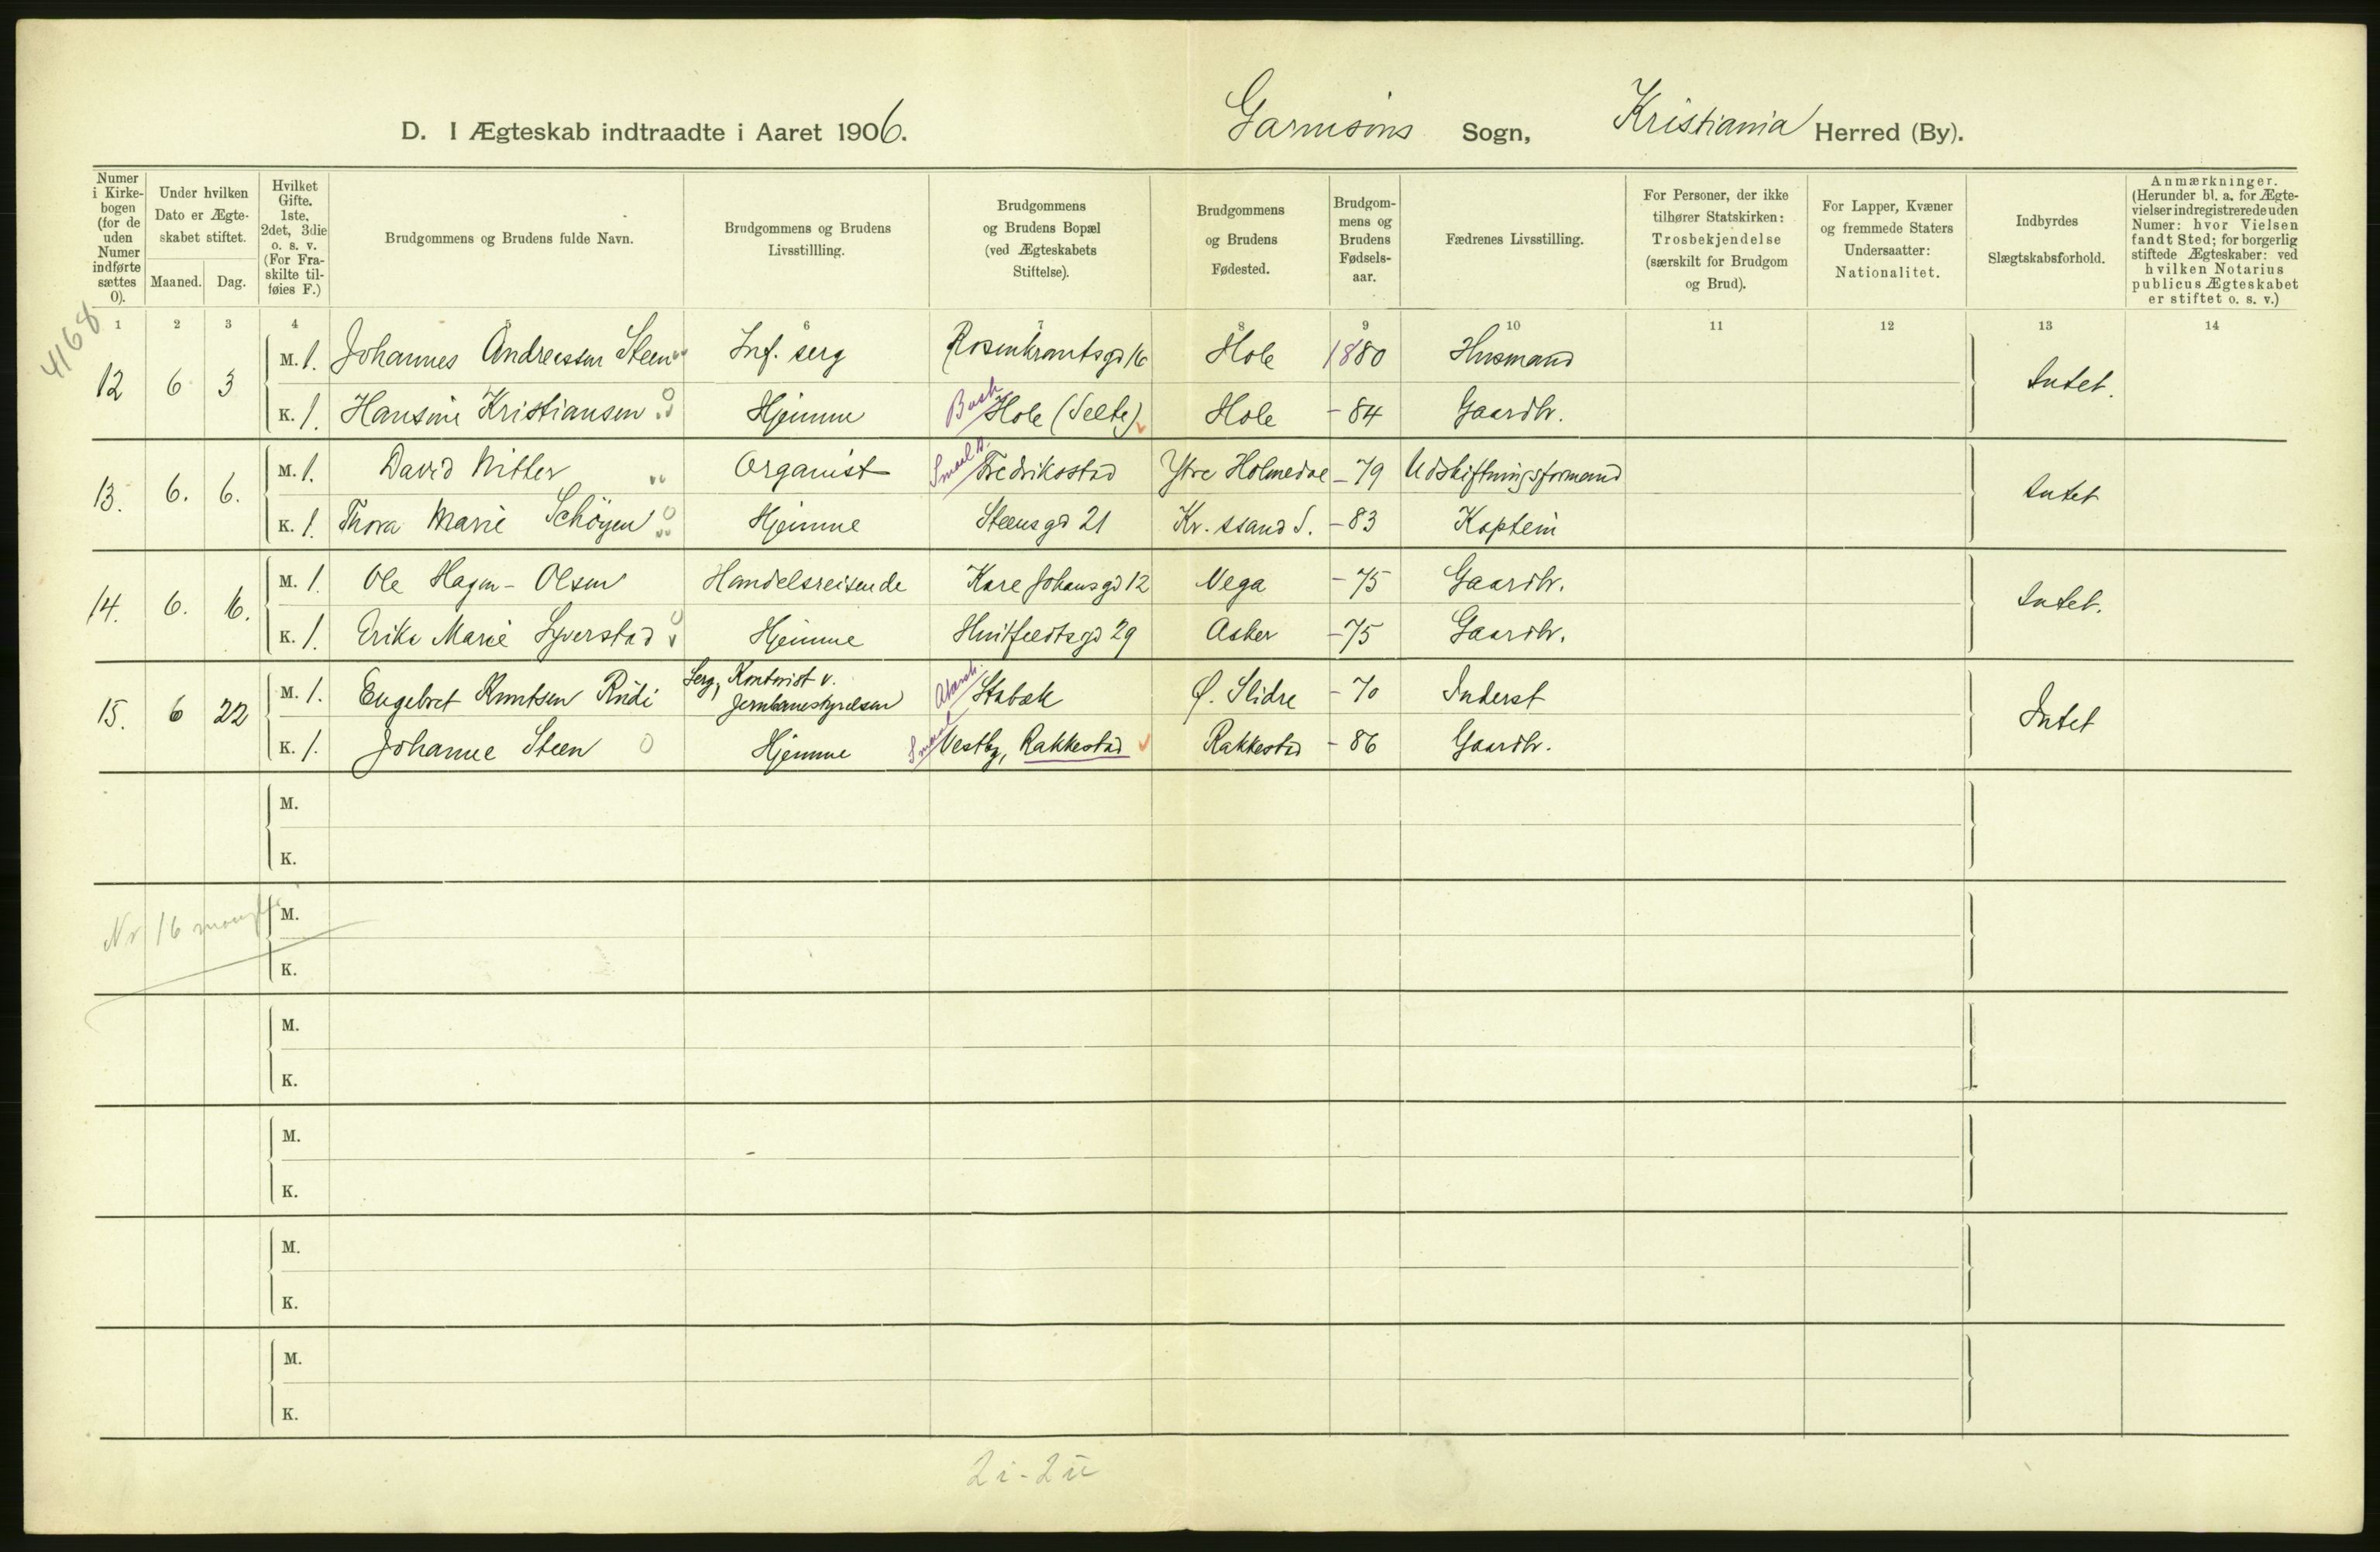 D. I Ægteskab indtraadte i Aaret 1906. Garnisons Sogn, Kristiania Herred (By).
Numer i Kirkebogen (for de uden Numer indførte sættes 0).
Under hvilken Dato er Ægteskabet stiftet.
Maaned. Dag.
Hvilket Gifte. 1ste, 2det, 3die o. s. v. (For Fraskilte tilføies F.)
Brudgommens og Brudens fulde Navn.
Brudgommens og Brudens Livsstillling.
Brudgommens og Brudens Bopæl (ved Ægteskabets Stiftelse).
Brudgommens og Brudens Fødested.
Brudgommens og Brudens Fødselsaar.
Fædrenes Livsstilling.
For Personer, der ikke tilhører Statskirken: Trosbekjendelse (særskilt for Brudgom og Brud).
For Lapper, Kvæner og fremmede Staters Undersaatter: Nationalitet.
Indbyrdes Slægtskabsforhold.
Anmærkninger. (Herunder bl. a. for Ægtevielser indregistrerede uden Numer: hvor Vielsen fandt Sted; for borgerlig stiftede Ægteskaber: ved hvilken Notarius publicus Ægteskabet er stiftet o. s. v.)
1 2 3 4 5 6 7 8 9 10 11 12 13 14
4168
12 6 3 M. 1. Johannes Andreassen Steen Inf. serg Rosenkrantsgd 16 Hole 1880 Husmand Intet.
K. 1. Hansine Kristiansen Hjemme Busk Hole (Selte) Hole - 84 Gaardbr.
13. 6. 6. M. 1. David Organist Smaal. Fredriksstad Ytre Holmedal - 79 Udskiftningsformand Intet
K. 1. Thora Marie Schöyen Hjemme Steensgd 21 Kr.ssand S. - 83 Kaptein
14. 6. 16. M. 1. Ole Hagen-Olsen Handelsreisende Karl Johansgd 12 Vega - 75 Gaardbr. Intet.
K. 1. Erika Marie Syverstad Hjemme Huitfeldtsgd 29 Asker - 75 Gaardbr.
15. 6 22 M. 1. Engebret Knutsen Rudi Serg, Kontorist v. Jernbanestyrelsen Akersh. Stabæk Ø. Slidre - 70 Inderst Intet
K. 1. Johanne Steen Hjemme Smaal Vestby, Rakkestad Rakkestad - 86 Gaardbr.
M.
K.
Nr 16 mangler
M.
K.
M.
K.
M.
K.
M.
K.
M.
K.